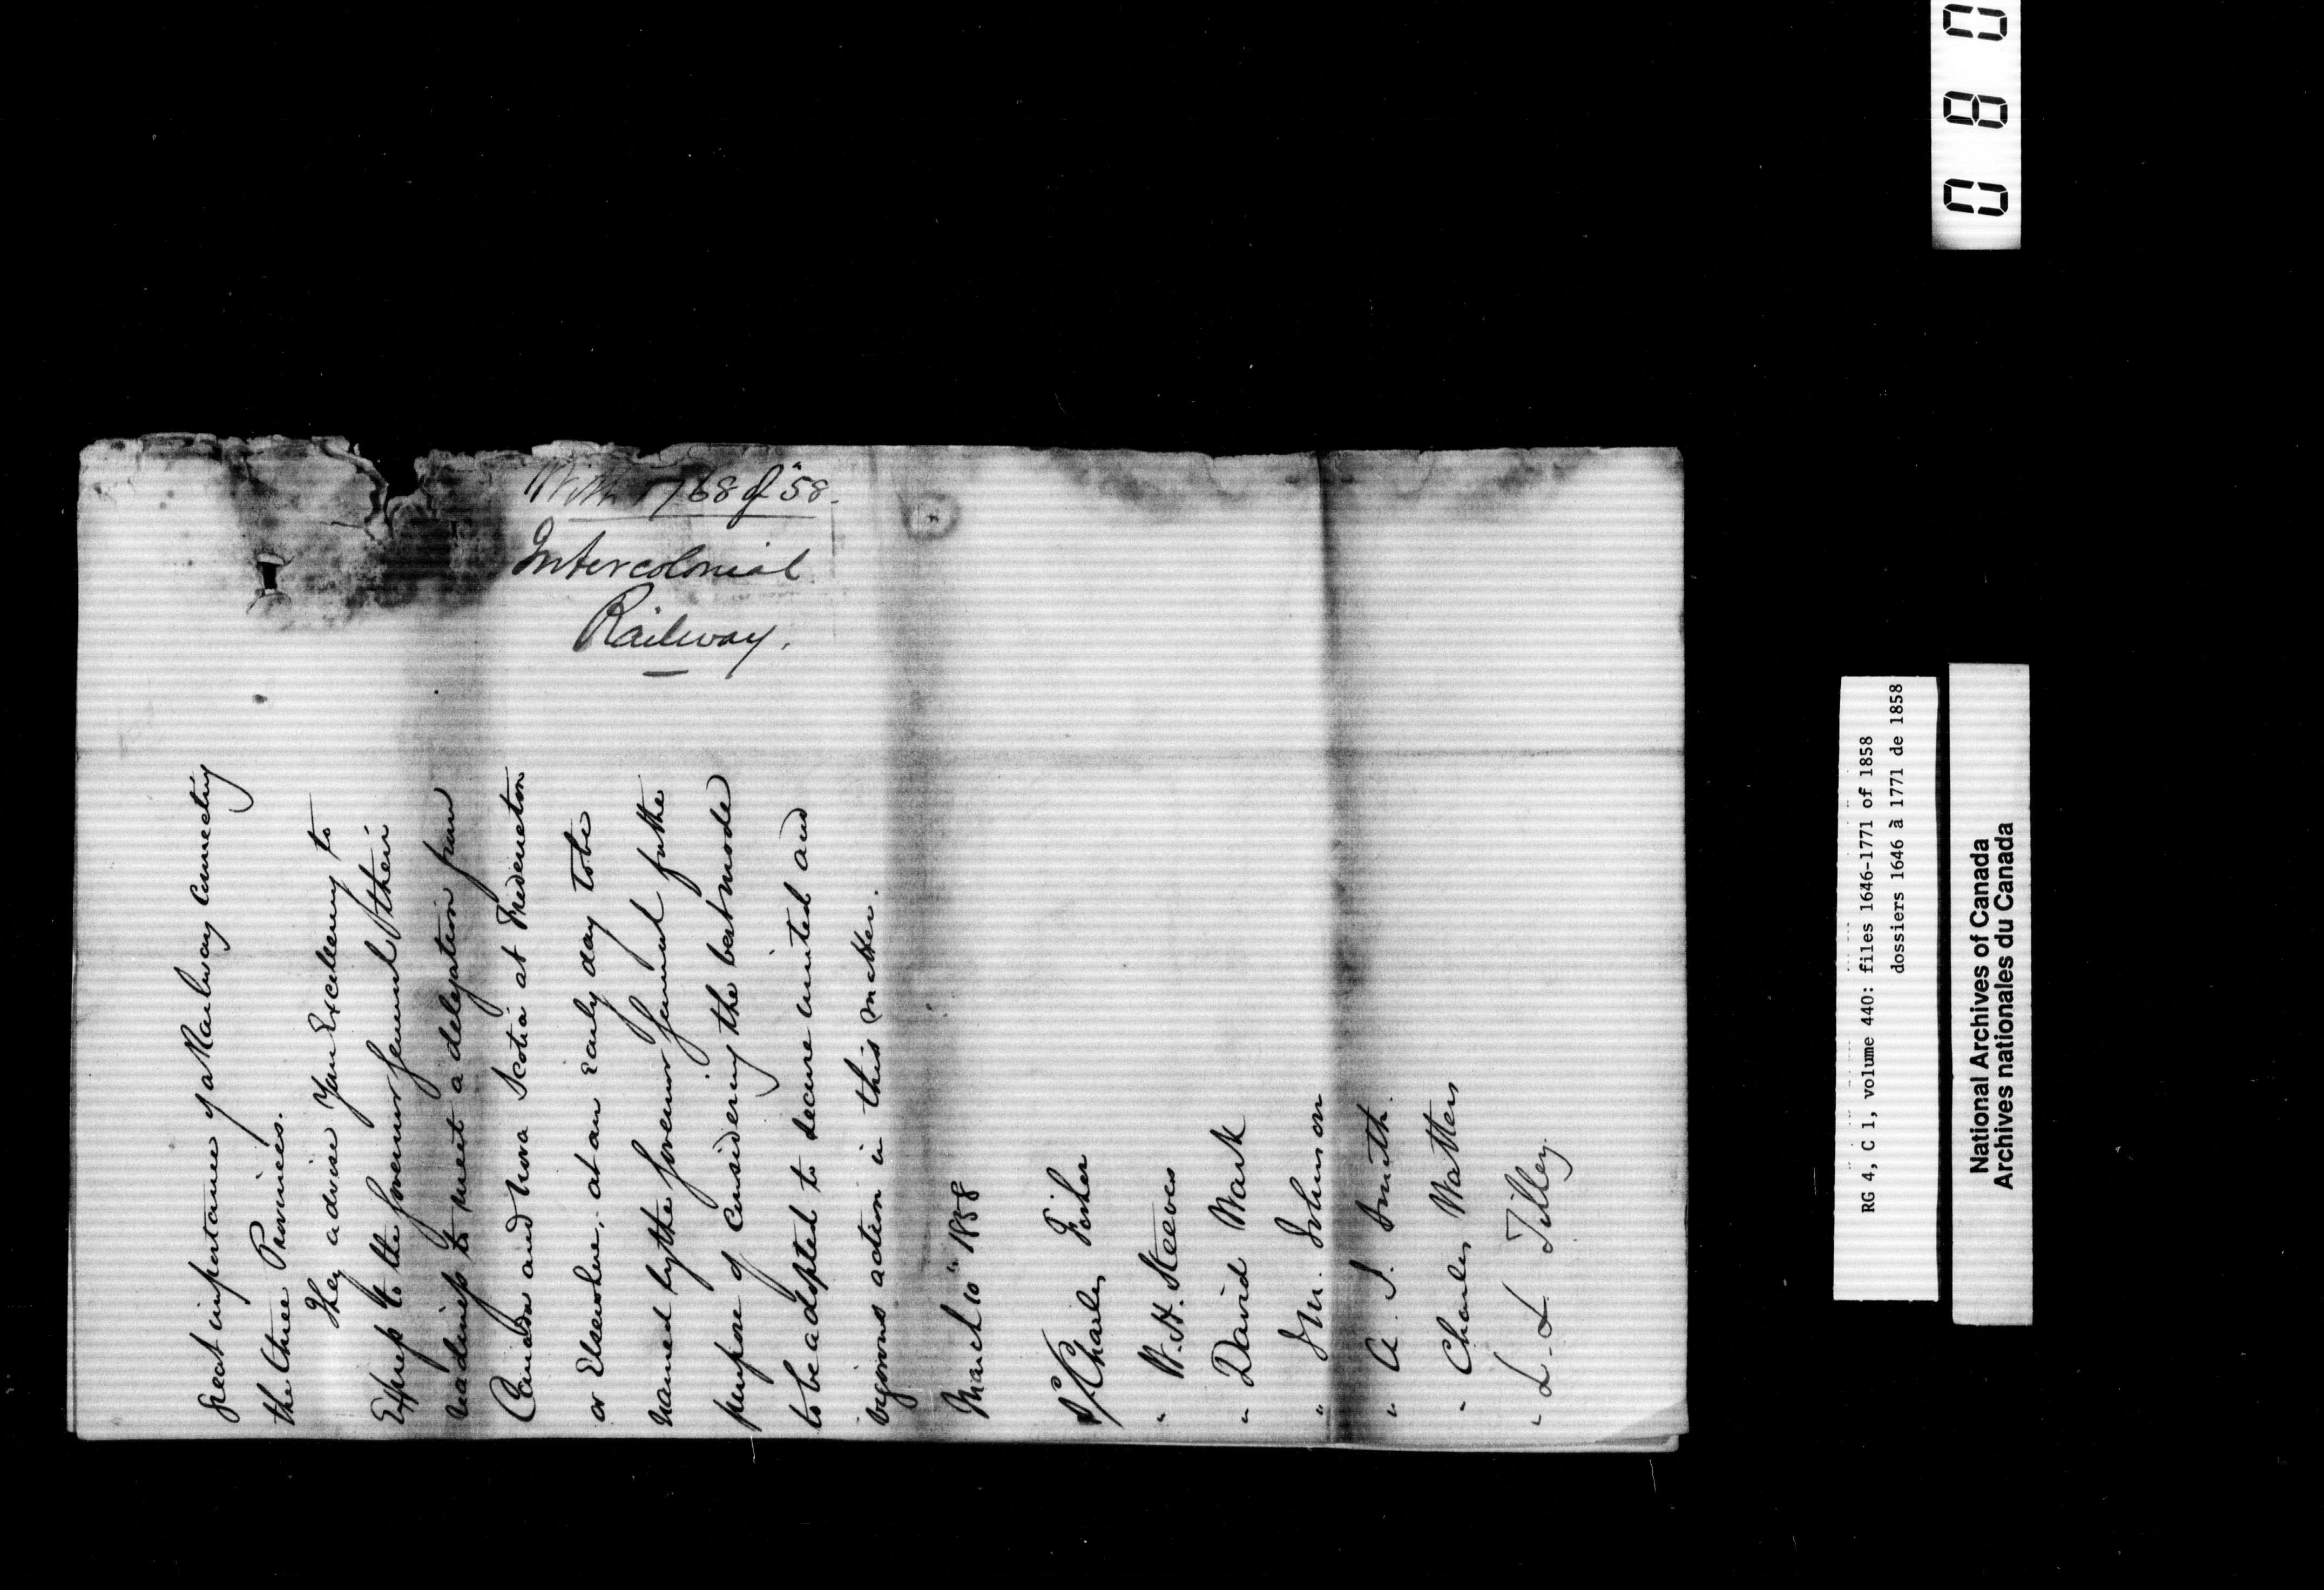 With 1768 of "58.
Intercolonial
Railway.
great importance of a Railway connecting
the three Provinces.
They advise Your Excellency to
Express to the Governor General their
readiness to meet a delegation from
Canada and Nova Scotia at Fredericton
or Elsewhere, at an Early day to be
named by the Governor General for the
purpose of Considering the best mode
to be adopted to secure united and
vigorous action in this matter.
March 10" 1858
S/ Charles Fisher
" W. H. Steeves
" David Wark
" J M. Johnson
" A. J. Smith.
" Charles Watters
" L. L Tilley
080
RG 4, C 1, volume 440: files 1646-1771 of 1858
dossiers 1646 à 1771 de 1858
National Archives of Canada
Archives nationales du Canada